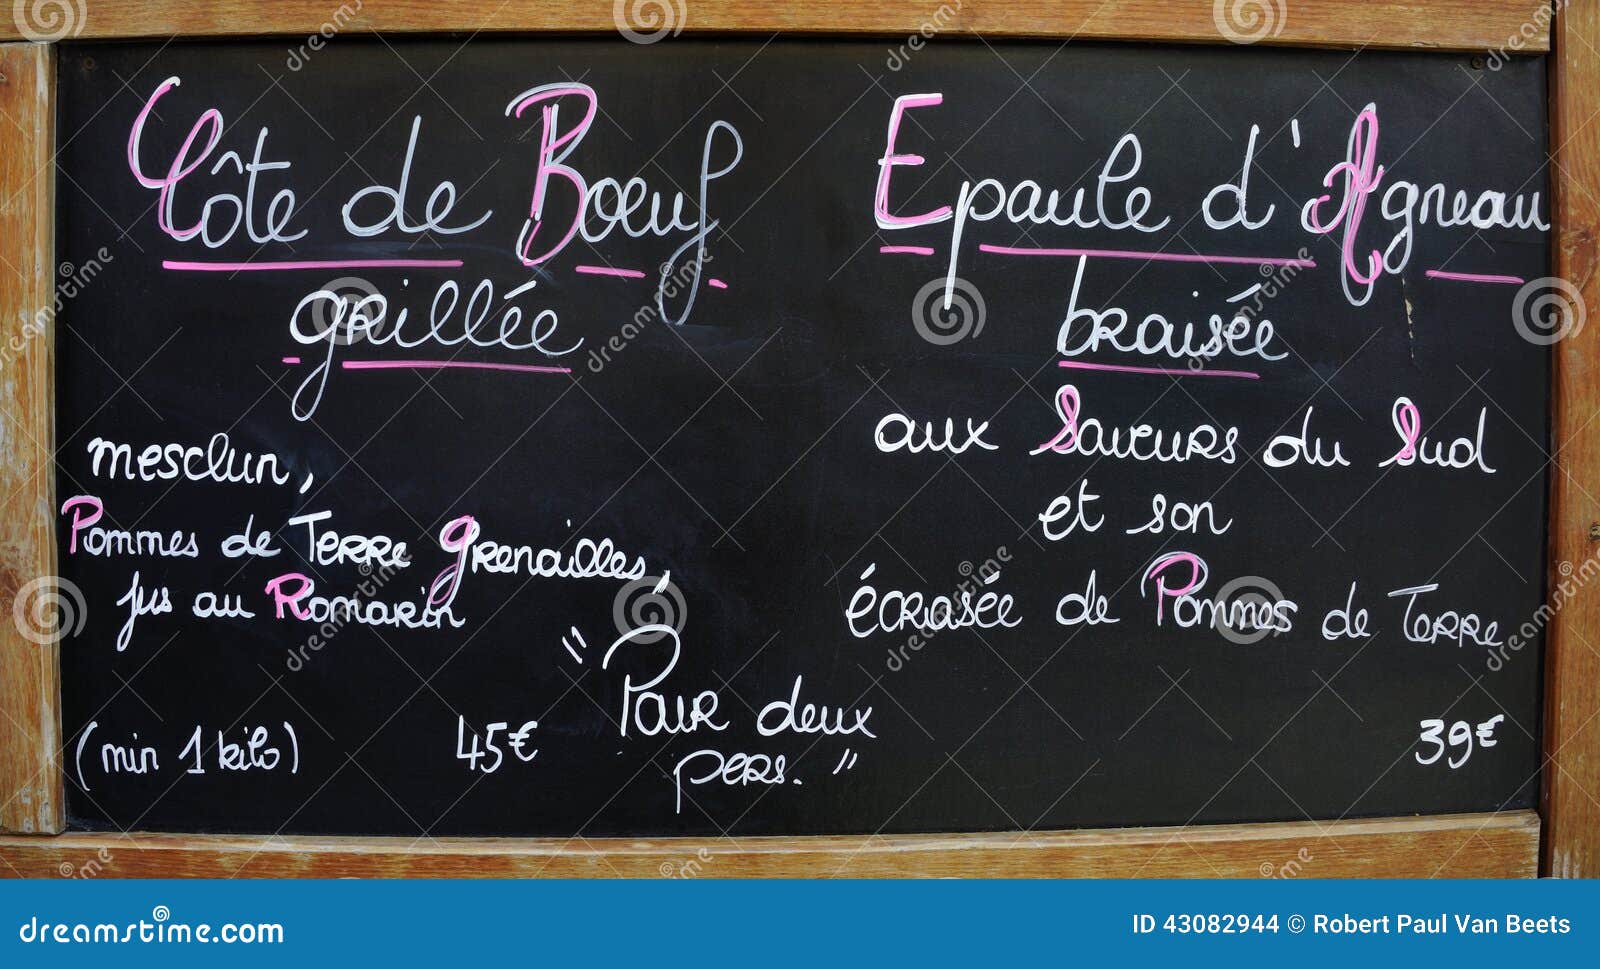 Côte de Bœuf
grillée
mesclun,
Pommes de Terre grenailles,
jus au Romarin
(min 1 kilo) 45€
"Pour deux
pers."
Epaule d'Agneau
braisée
aux Saveurs du Sud
et son
écrasée de Pommes de Terre
39€
dreamstime.com
ID 43082944 © Robert Paul Van Beets